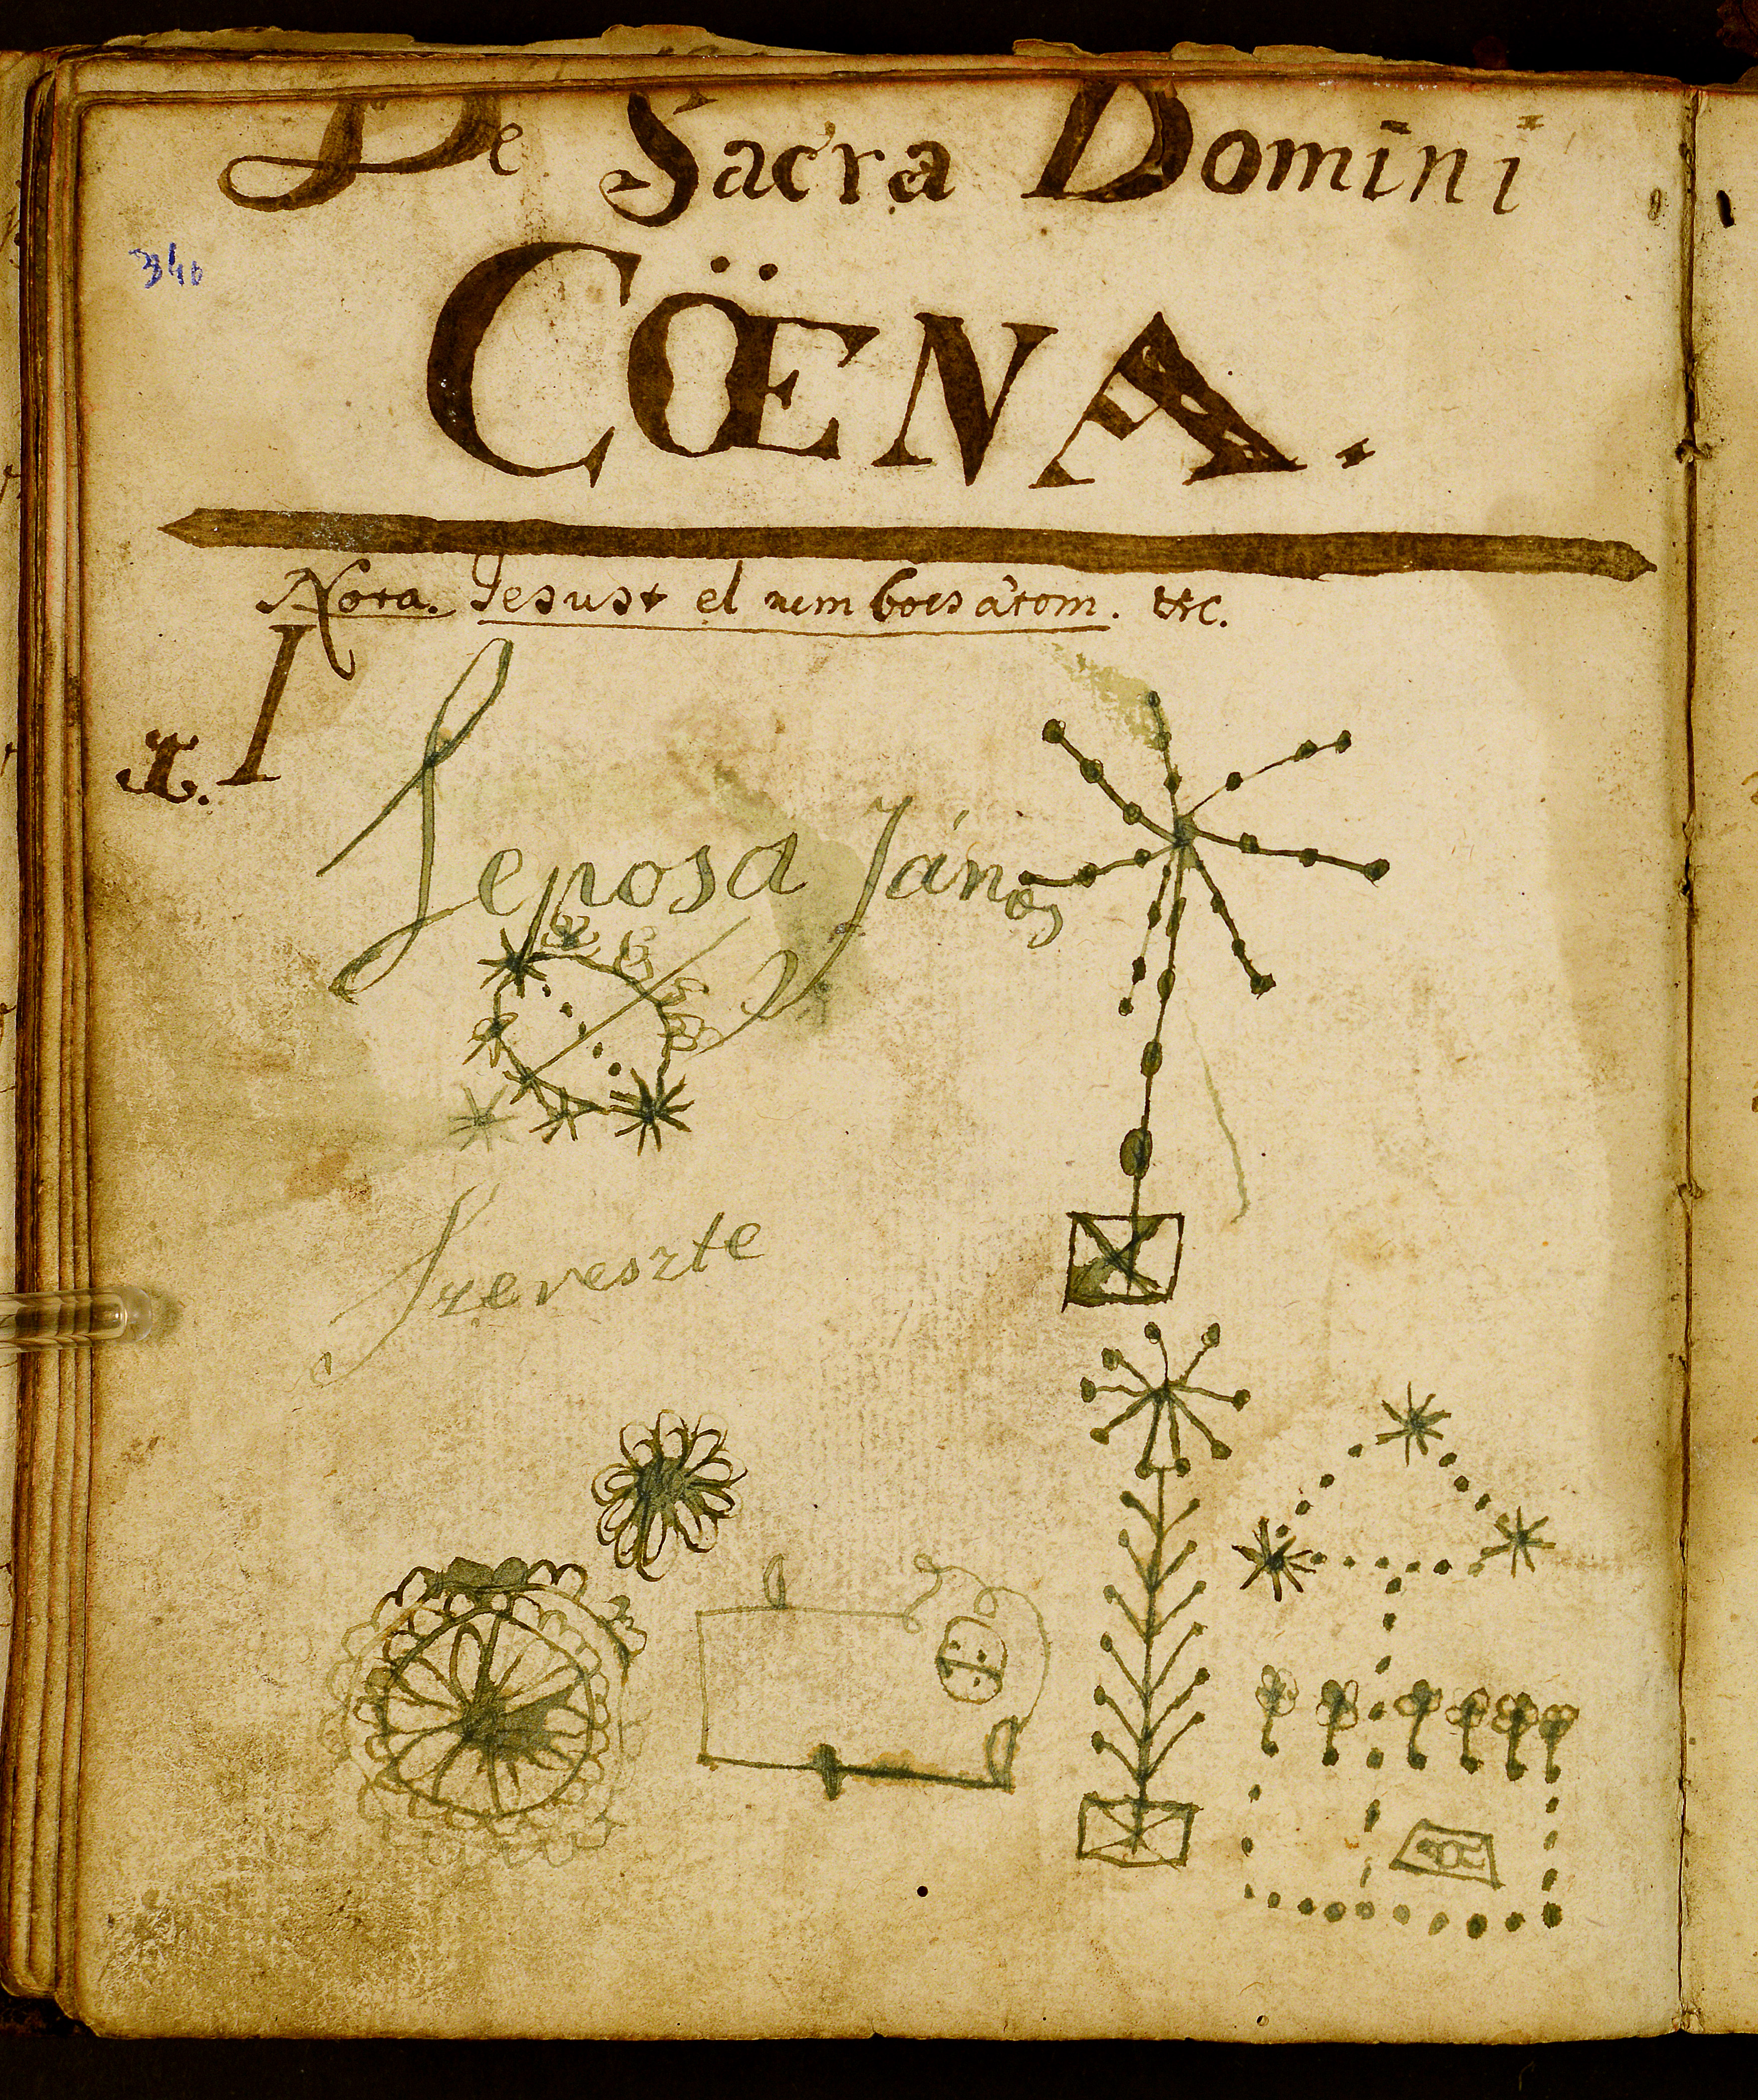 De Sacra Domini
346
CŒNA.
Nota. Jesust el nem bocsátom. etc.
I
I.
Seposa János
Szereszte